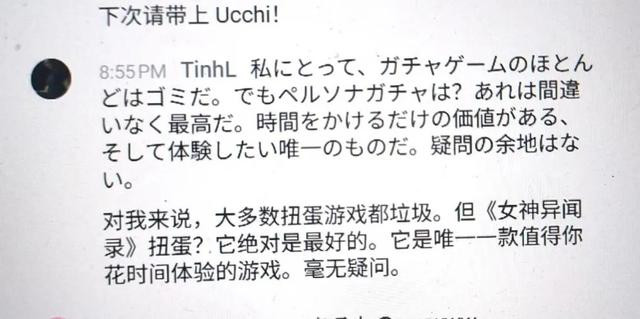 下次请带上 Ucchi！
8:55PM TinhL 私にとって、ガチャゲームのほとん
どはゴミだ。でもペルソナガチャは？あれは間違
いなく最高だ。時間をかけるだけの価値がある、
そして体験したい唯一のものだ。疑問の余地はな
い。
对我来说，大多数扭蛋游戏都垃圾。但《女神异闻
录》扭蛋？它绝对是最好的。它是唯一一款值得你
花时间体验的游戏。毫无疑问。